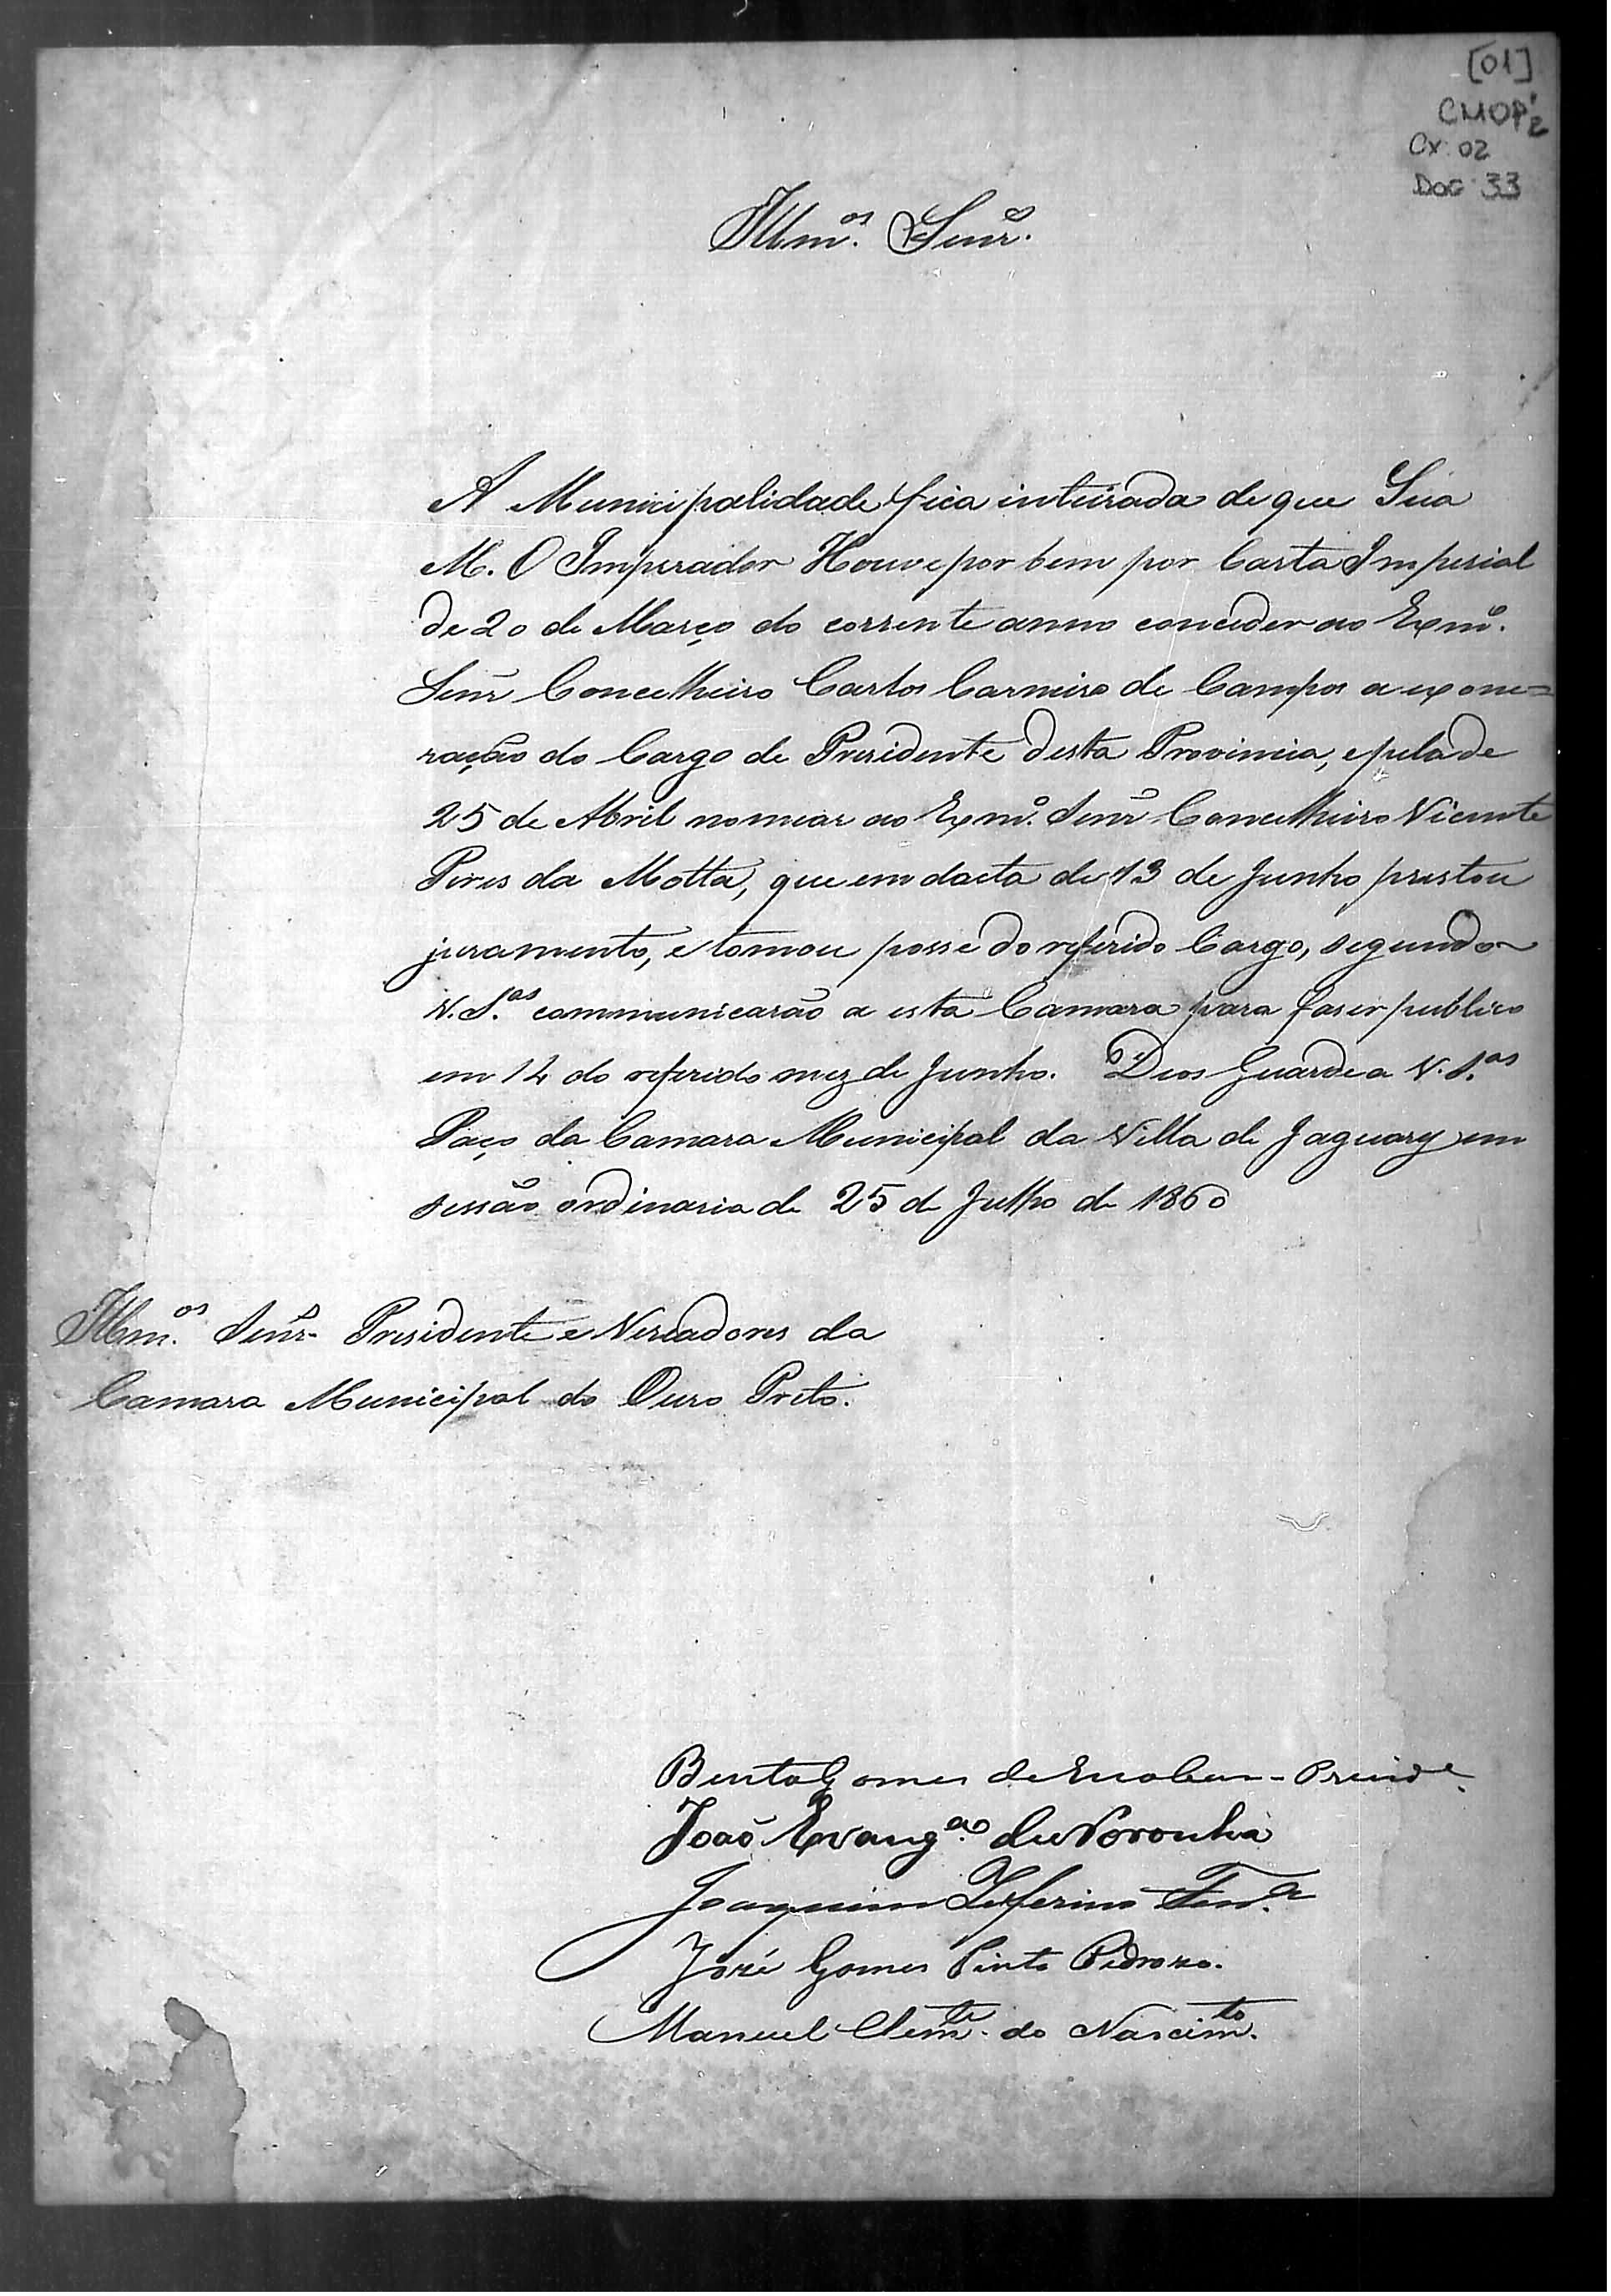 [01]
CMOP 2
Cx. 02
Doc 33
Illm.os Senr.es
A Municipalidade fica inteirada de que Sua
M. O Imperador Houve por bem por Carta Imperial
de 20 de Março do corrente anno conceder ao Exmo.
Senr Concelheiro Carlos Carneiro de Campos a exone=
ração do Cargo de Presidente desta Provincia, e pela de
25 de Abril nomear ao Exmo. Senr Concelheiro Vicente
Pires da Motta, que em dacta de 13 de Junho prestou
juramento, e tomou posse do referido Cargo, segundo
V.S.as communicarão a esta Camara para faser publico
em 14 do referido mez de Junho. Deos Guarde a V.S.as
Paço da Camara Municipal da Villa de Jaguary em
sessão ordinaria de 25 de Julho de 1860
Illm.os Senrs. Presidente e Vereadores da
Camara Municipal do Ouro Preto.
Bento Gomes de Escobar - Preside.
João Evang.ao de Noronha
Joaquim Zeferino
José Gomes Pinto Pedrozo.
Manuel Clemte. do Nascimto.